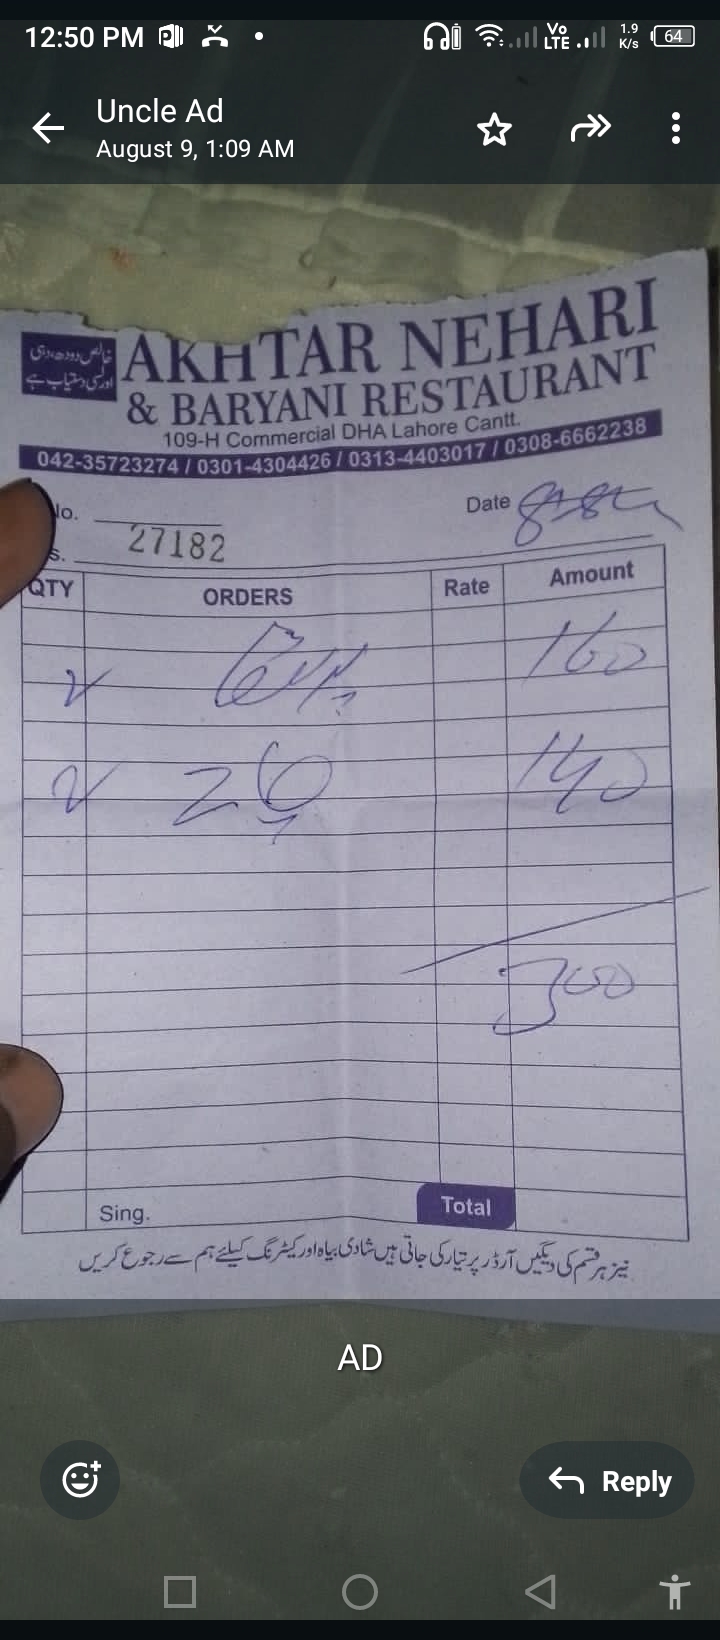 12:50 PM
Vo LTE 1.9 K/s 64
Uncle Ad
August 9, 1:09 AM
خالص دودھ، دہی
اور لسی دستیاب ہے
AKHTAR NEHARI
& BARYANI RESTAURANT
109-H Commercial DHA Lahore Cantt.
042-35723274 / 0301-4304426 / 0313-4403017 / 0308-6662238
No.
Date
27182
s.
QTY ORDERS Rate Amount
160
140
300
Sing. Total
نیز ہر قسم کی دیگیں آرڈر پر تیار کی جاتی ہیں شادی بیاہ اور کیٹرنگ کیلئے ہم سے رجوع کریں
AD
Reply